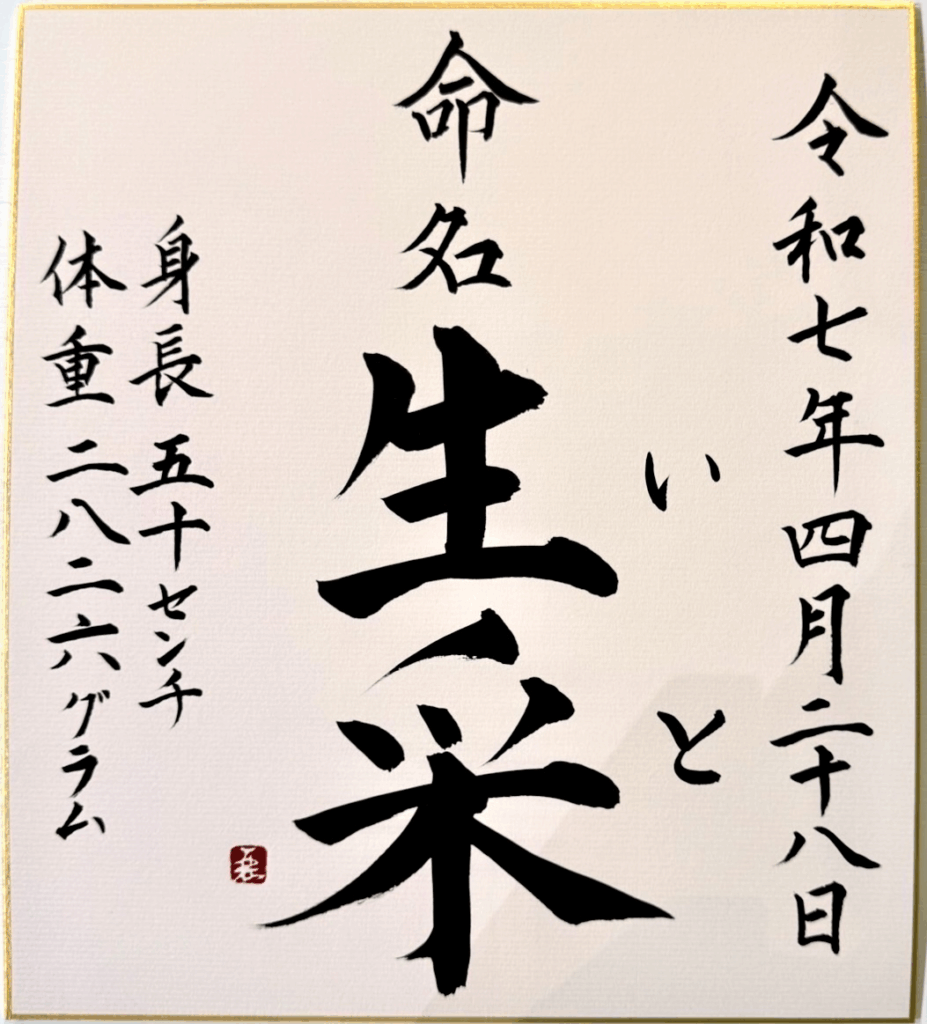 令和七年四月二十八日
いと
命名
生采
身長五十センチ
体重二八二六グラム